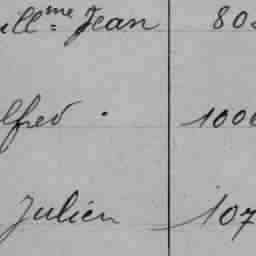 ll^me Jean 80
lfred . 100
Julien 107